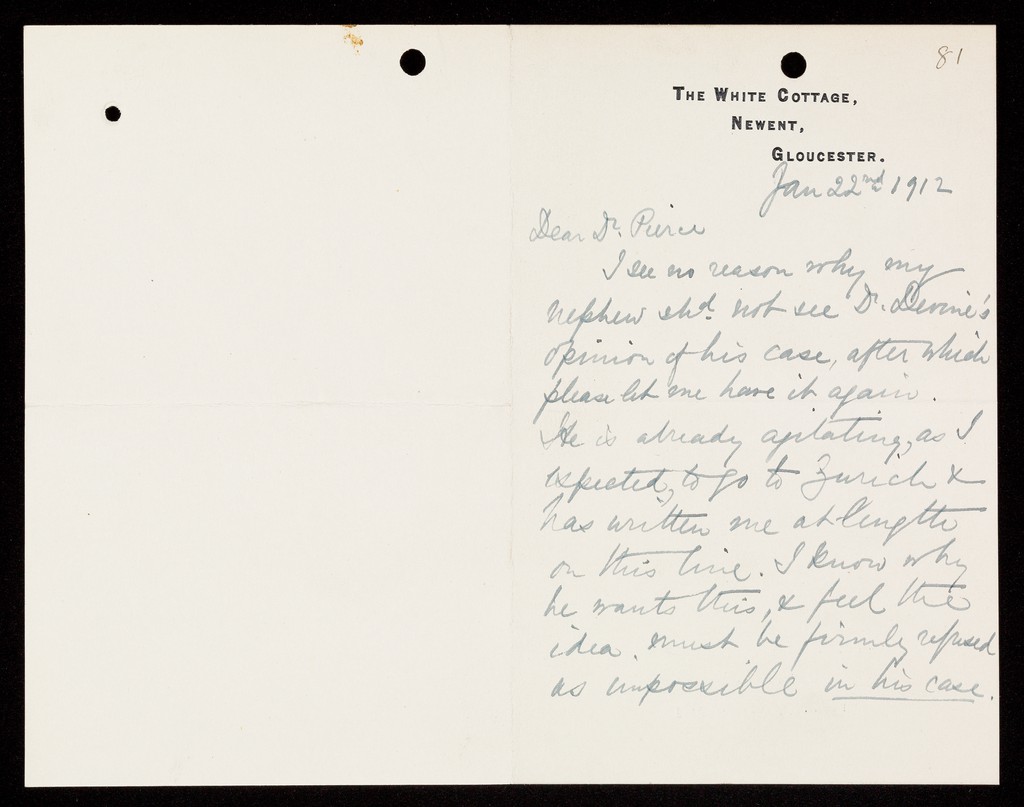 81
THE WHITE COTTAGE,
NEWENT,
GLOUCESTER.
Jan 22nd 1912
Dear Dr. Pierce
I see no reason why my
nephew shd. not see Dr. Devine's
opinion of his case, after which
please let me have it again.
He is already agitating, as I
expected, to go to Zurich &
has written me at length
on this line. I know why
he wants this, & feel the
idea must be firmly refused
as impossible in his case.